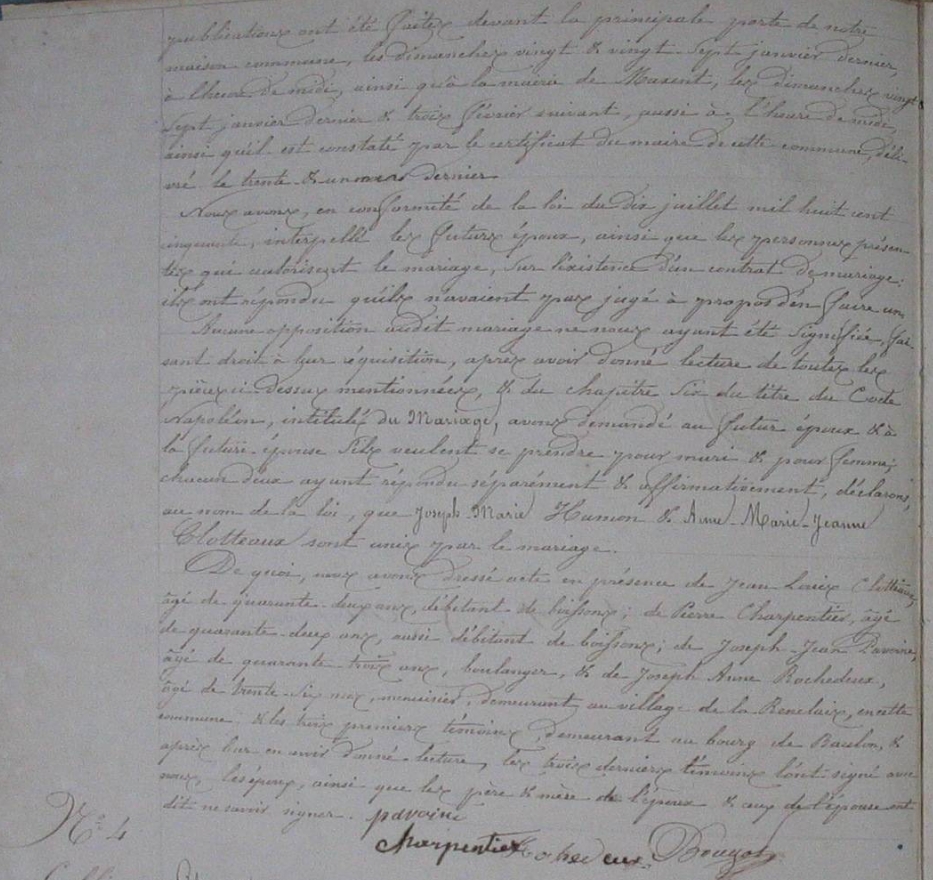 publications ont été faites devant la principale porte de notre
maison commune, les dimanches vingt & vingt-sept janvier dernier,
à l'heure de midi, ainsi qu'à la mairie de Maxent, les dimanches vingt-
sept janvier dernier & trois février suivant, aussi à l'heure de midi,
ainsi qu'il est constaté par le certificat du maire de cette commune, déli-
vré le trente & un mars dernier
Nous avons, en conformité de la loi du dix juillet mil huit cent
cinquante, interpellé les futurs époux, ainsi que les personnes présen-
tes qui autorisent le mariage, sur l'existence d'un contrat de mariage:
ils ont répondu qu'ils n'avaient pas jugé à propos d'en faire un
Aucune opposition audit mariage ne nous ayant été signifiée, fai-
sant droit à leur réquisition, après avoir donné lecture de toutes les
pièces ci-dessus mentionnées, & du chapitre six du titre du Code
Napoléon, intitulé du Mariage, avons demandé au futur époux & à
la future épouse s'ils veulent se prendre pour mari & pour femme;
chacun d'eux ayant répondu séparément & affirmativement, déclarons,
au nom de la loi, que Joseph-Marie Hamon & Anne-Marie-Jeanne
Clotteaux sont unis par le mariage.
De quoi, nous avons dressé acte en présence de Jean-Louis Clotteaux,
âgé de quarante-deux ans, débitant de boissons; de Pierre Charpentier, âgé
de quarante-deux ans, aussi débitant de boissons; de Joseph-Jean Pavoine,
âgé de quarante-trois ans, boulanger, & de Joseph Anne Rochedeux,
âgé de trente-six ans, menuisier, demeurant au village de la en cette
commune & les trois premiers témoins demeurant au bourg de Baulon, &
après leur en avoir donné lecture, les trois derniers témoins l'ont signé avec
nous, les époux, ainsi que les père & mère de l'époux & ceux de l'épouse ont
dit ne savoir signer. pavoine
N° 4
Charpentier Rochedeux Bougon